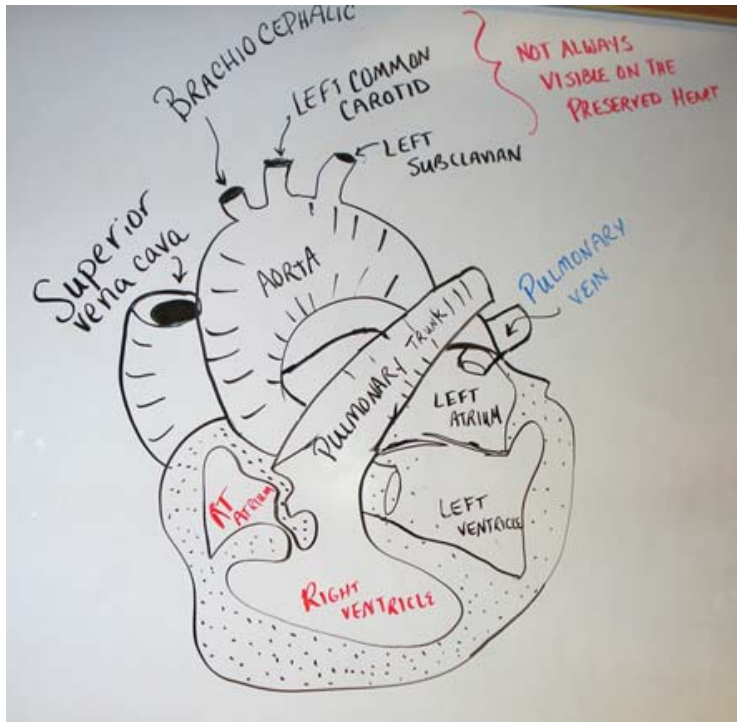 BRACHIOCEPHALIC
LEFT COMMON
CAROTID
LEFT
SUBCLAVIAN
NOT ALWAYS
VISIBLE ON THE
PRESERVED HEART
Superior
vena cava
AORTA
PULMONARY
VEIN
PULMONARY TRUNK
LEFT
ATRIUM
RT
ATRIUM
LEFT
VENTRICLE
RIGHT
VENTRICLE